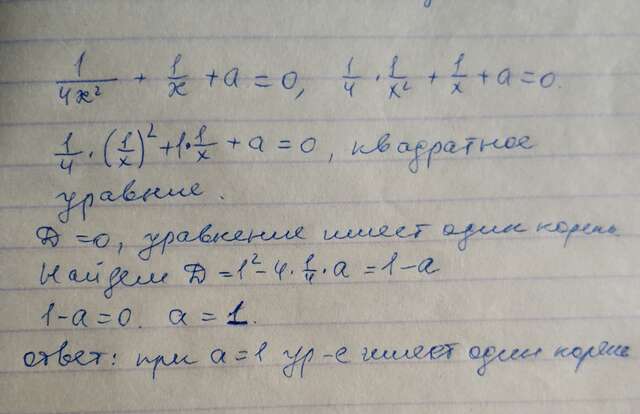 1/(4x²) + 1/x + a = 0, 1/4 · 1/x² + 1/x + a = 0.
1/4 · (1/x)² + 1 · 1/x + a = 0, квадратное
уравние.
D = 0, уравнение имеет один корень
Найдем D = 1² - 4 · 1/4 · a = 1 - a
1 - a = 0. a = 1.
ответ: при a = 1 ур-е имеет один корень